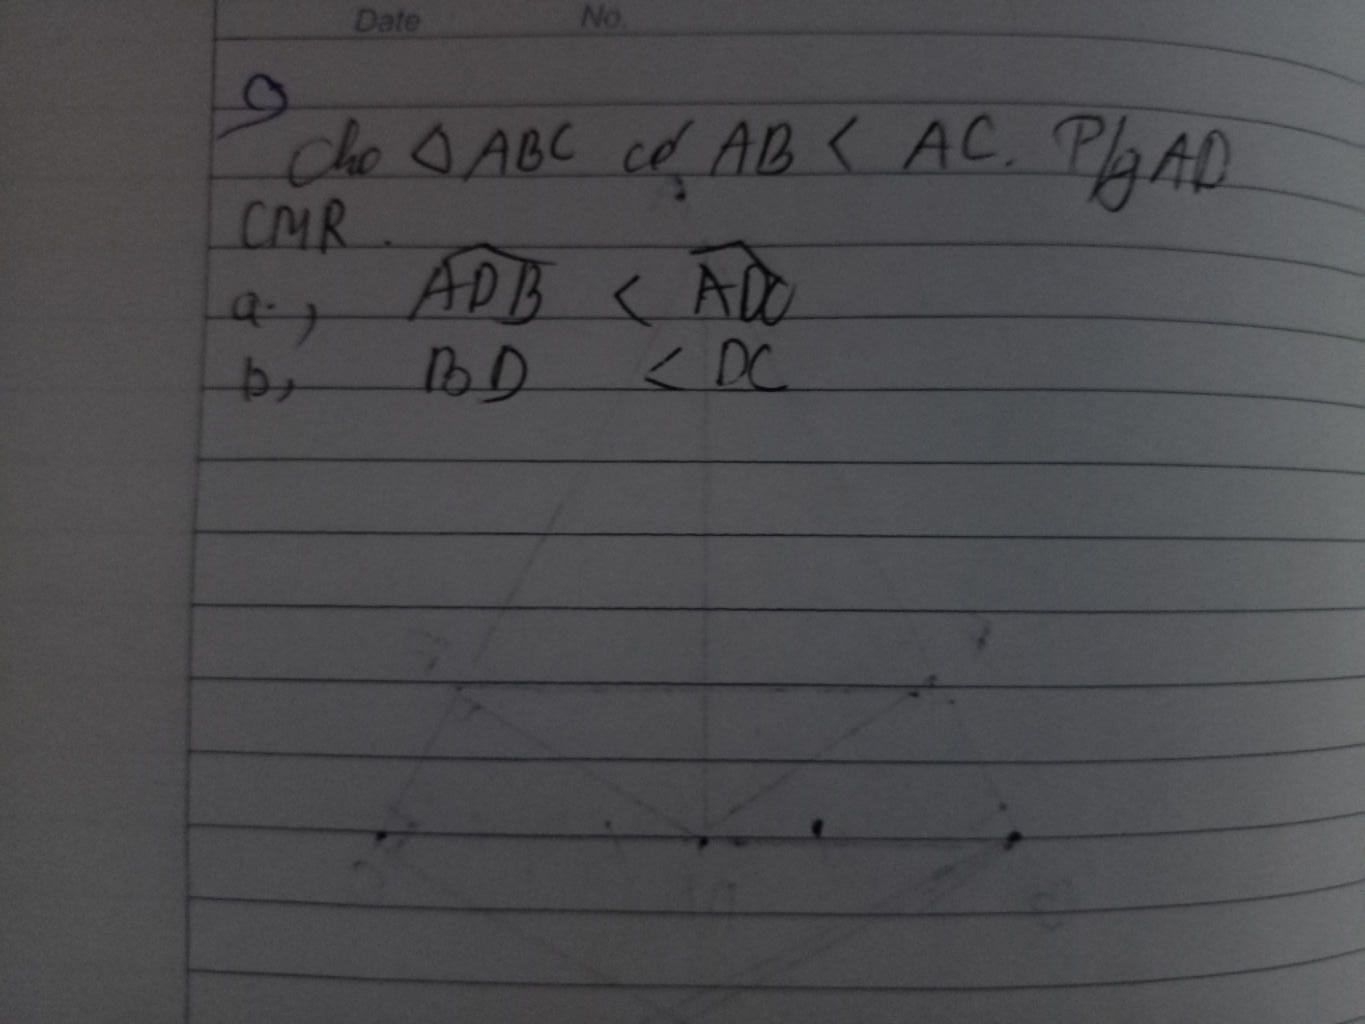 Date No.
9
Cho Δ ABC có AB < AC. P/g AD
CMR.
a., ADB < ADC
b, BD < DC